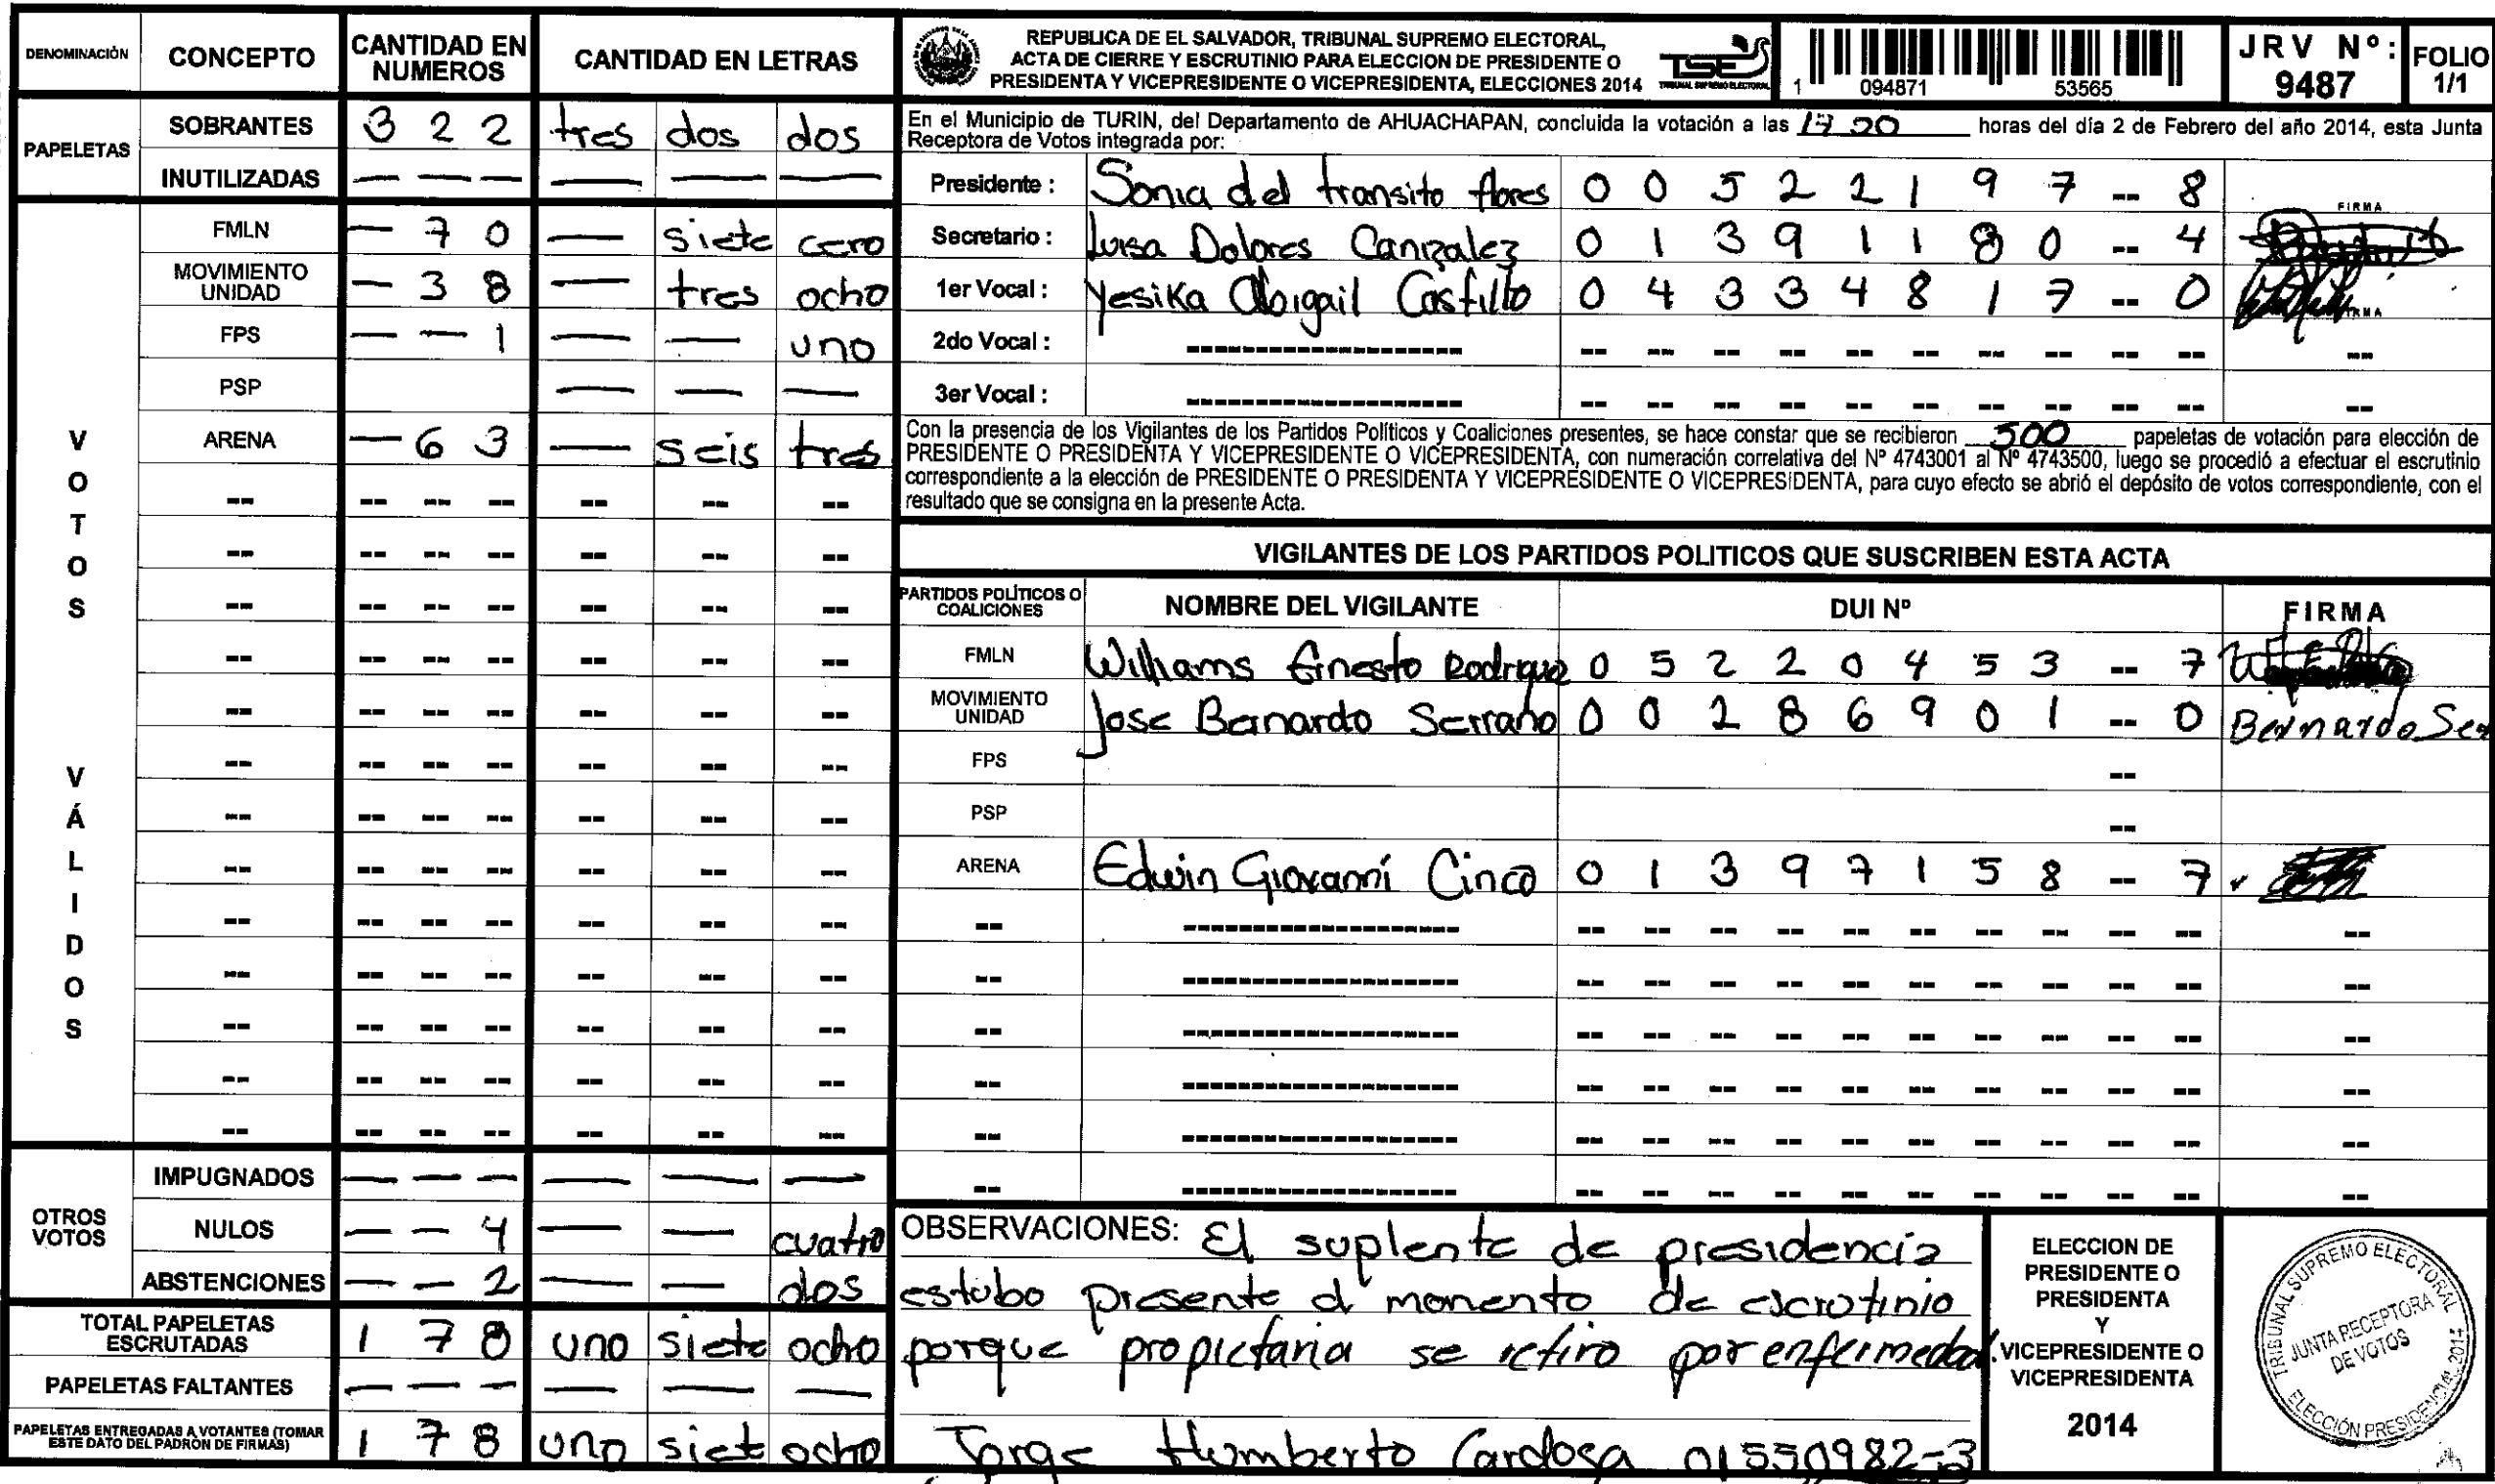 DENOMINACIÓN CONCEPTO CANTIDAD EN NUMEROS CANTIDAD EN LETRAS
PAPELETAS
SOBRANTES 3 2 2 tres dos dos
INUTILIZADAS — — — — — —
VOTOS VÁLIDOS
FMLN — 7 0 — siete cero
MOVIMIENTO UNIDAD — 3 8 — tres ocho
FPS — — 1 — — uno
PSP — — —
ARENA — 6 3 — seis tres
OTROS VOTOS
IMPUGNADOS — — — — — —
NULOS — — 4 — — cuatro
ABSTENCIONES — — 2 — — dos
TOTAL PAPELETAS ESCRUTADAS 1 7 8 uno siete ocho
PAPELETAS FALTANTES — — — — — —
PAPELETAS ENTREGADAS A VOTANTES (TOMAR ESTE DATO DEL PADRON DE FIRMAS) 1 7 8 uno siete ocho
REPUBLICA DE EL SALVADOR, TRIBUNAL SUPREMO ELECTORAL,
ACTA DE CIERRE Y ESCRUTINIO PARA ELECCION DE PRESIDENTE O
PRESIDENTA Y VICEPRESIDENTE O VICEPRESIDENTA, ELECCIONES 2014
TSE
TRIBUNAL SUPREMO ELECTORAL
1 094871 53565
JRV Nº: 9487
FOLIO 1/1
En el Municipio de TURIN, del Departamento de AHUACHAPAN, concluida la votación a las horas del día 2 de Febrero del año 2014, esta Junta
Receptora de Votos integrada por:
Presidente : Sonia del transito flores 0 0 5 2 2 1 9 7 -- 8
FIRMA
Secretario : Luisa Dolores Canizalez 0 1 3 9 1 1 8 0 -- 4
1er Vocal : Yesika Abigail Castillo 0 4 3 3 4 8 1 7 -- 0
FIRMA
2do Vocal :
3er Vocal :
Con la presencia de los Vigilantes de los Partidos Políticos y Coaliciones presentes, se hace constar que se recibieron 500 papeletas de votación para elección de
PRESIDENTE O PRESIDENTA Y VICEPRESIDENTE O VICEPRESIDENTA, con numeración correlativa del Nº 4743001 al Nº 4743500, luego se procedió a efectuar el escrutinio
correspondiente a la elección de PRESIDENTE O PRESIDENTA Y VICEPRESIDENTE O VICEPRESIDENTA, para cuyo efecto se abrió el depósito de votos correspondiente, con el
resultado que se consigna en la presente Acta.
VIGILANTES DE LOS PARTIDOS POLITICOS QUE SUSCRIBEN ESTA ACTA
PARTIDOS POLÍTICOS O COALICIONES NOMBRE DEL VIGILANTE DUI Nº FIRMA
FMLN Williams Ernesto Rodrigue 0 5 2 2 0 4 5 3 -- 7
MOVIMIENTO UNIDAD Jose Bernardo Serrano 0 0 2 8 6 9 0 1 -- 0 Bernardo Ser
FPS --
PSP --
ARENA Edwin Giovanni Cinco 0 1 3 9 7 1 5 8 -- 7
OBSERVACIONES: El suplente de presidencia
estubo presente al momento de escrutinio
porque propietaria se retiro por enfermedad.
Jorge Humberto Cardosa 01550982-3
ELECCION DE
PRESIDENTE O
PRESIDENTA
Y
VICEPRESIDENTE O
VICEPRESIDENTA
2014
TRIBUNAL SUPREMO ELECTORAL
JUNTA RECEPTORA
DE VOTOS
ELECCIÓN PRESIDENCIAL 2014